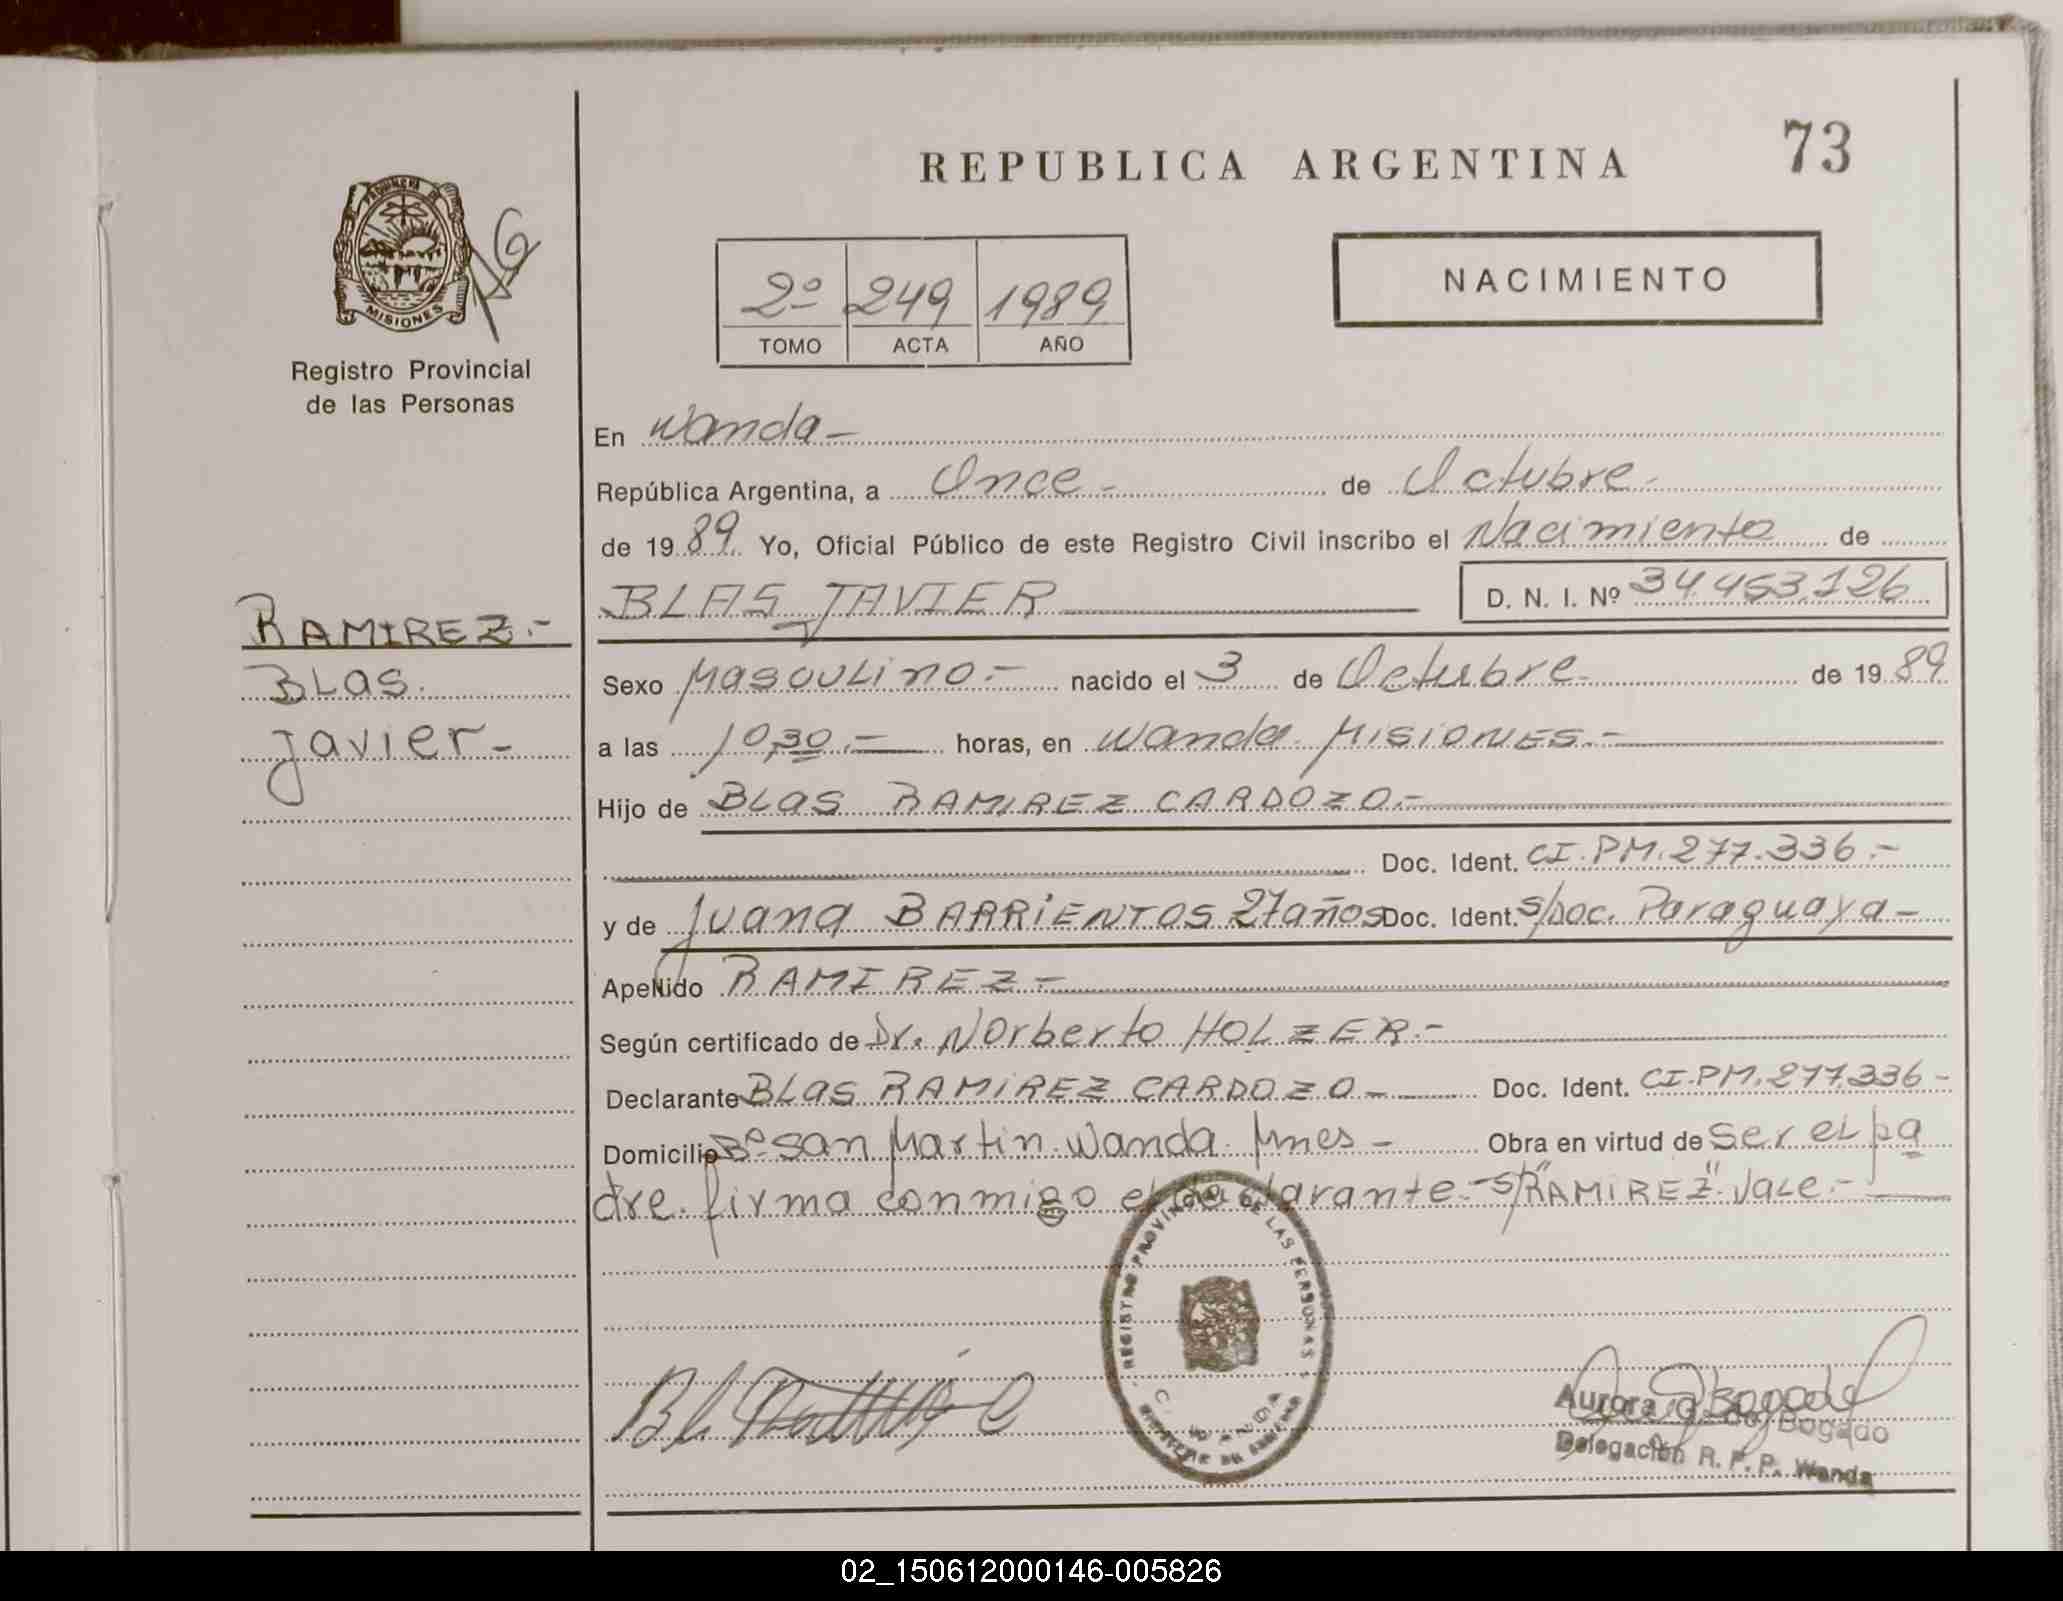 REPUBLICA ARGENTINA
73
PROVINCIA DE
MISIONES
Registro Provincial
de las Personas
2º 249 1989
TOMO ACTA AÑO
NACIMIENTO
En Wanda -
República Argentina, a Once - de Octubre -
de 19 89 Yo, Oficial Público de este Registro Civil inscribo el Nacimiento de
BLAS JAVIER D. N. I. Nº 34.453.126
RAMIREZ.-
Blas.
Javier-
Sexo Masculino.- nacido el 3 de Octubre - de 19 89
a las 10,30.- horas, en Wanda. Misiones.-
Hijo de BLAS RAMIREZ CARDOZO.-
Doc. Ident. CI.PM.277.336.-
y de Juana BARRIENTOS 27 años Doc. Ident. s/Doc. Paraguaya -
Apellido RAMIREZ -
Según certificado de Dr. Norberto HOLZER.-
Declarante BLAS RAMIREZ CARDOZO - Doc. Ident. CI.PM.277.336 -
Domicilio Bº San Martin. Wanda. Mnes - Obra en virtud de ser el pa
dre. firma conmigo el declarante.- s/R "RAMIREZ". Vale.-
REGISTRO PROVINCIAL DE LAS PERSONAS
WANDA
Aurora G. de Bogado
Delegación R. P. P. Wanda
02_150612000146-005826